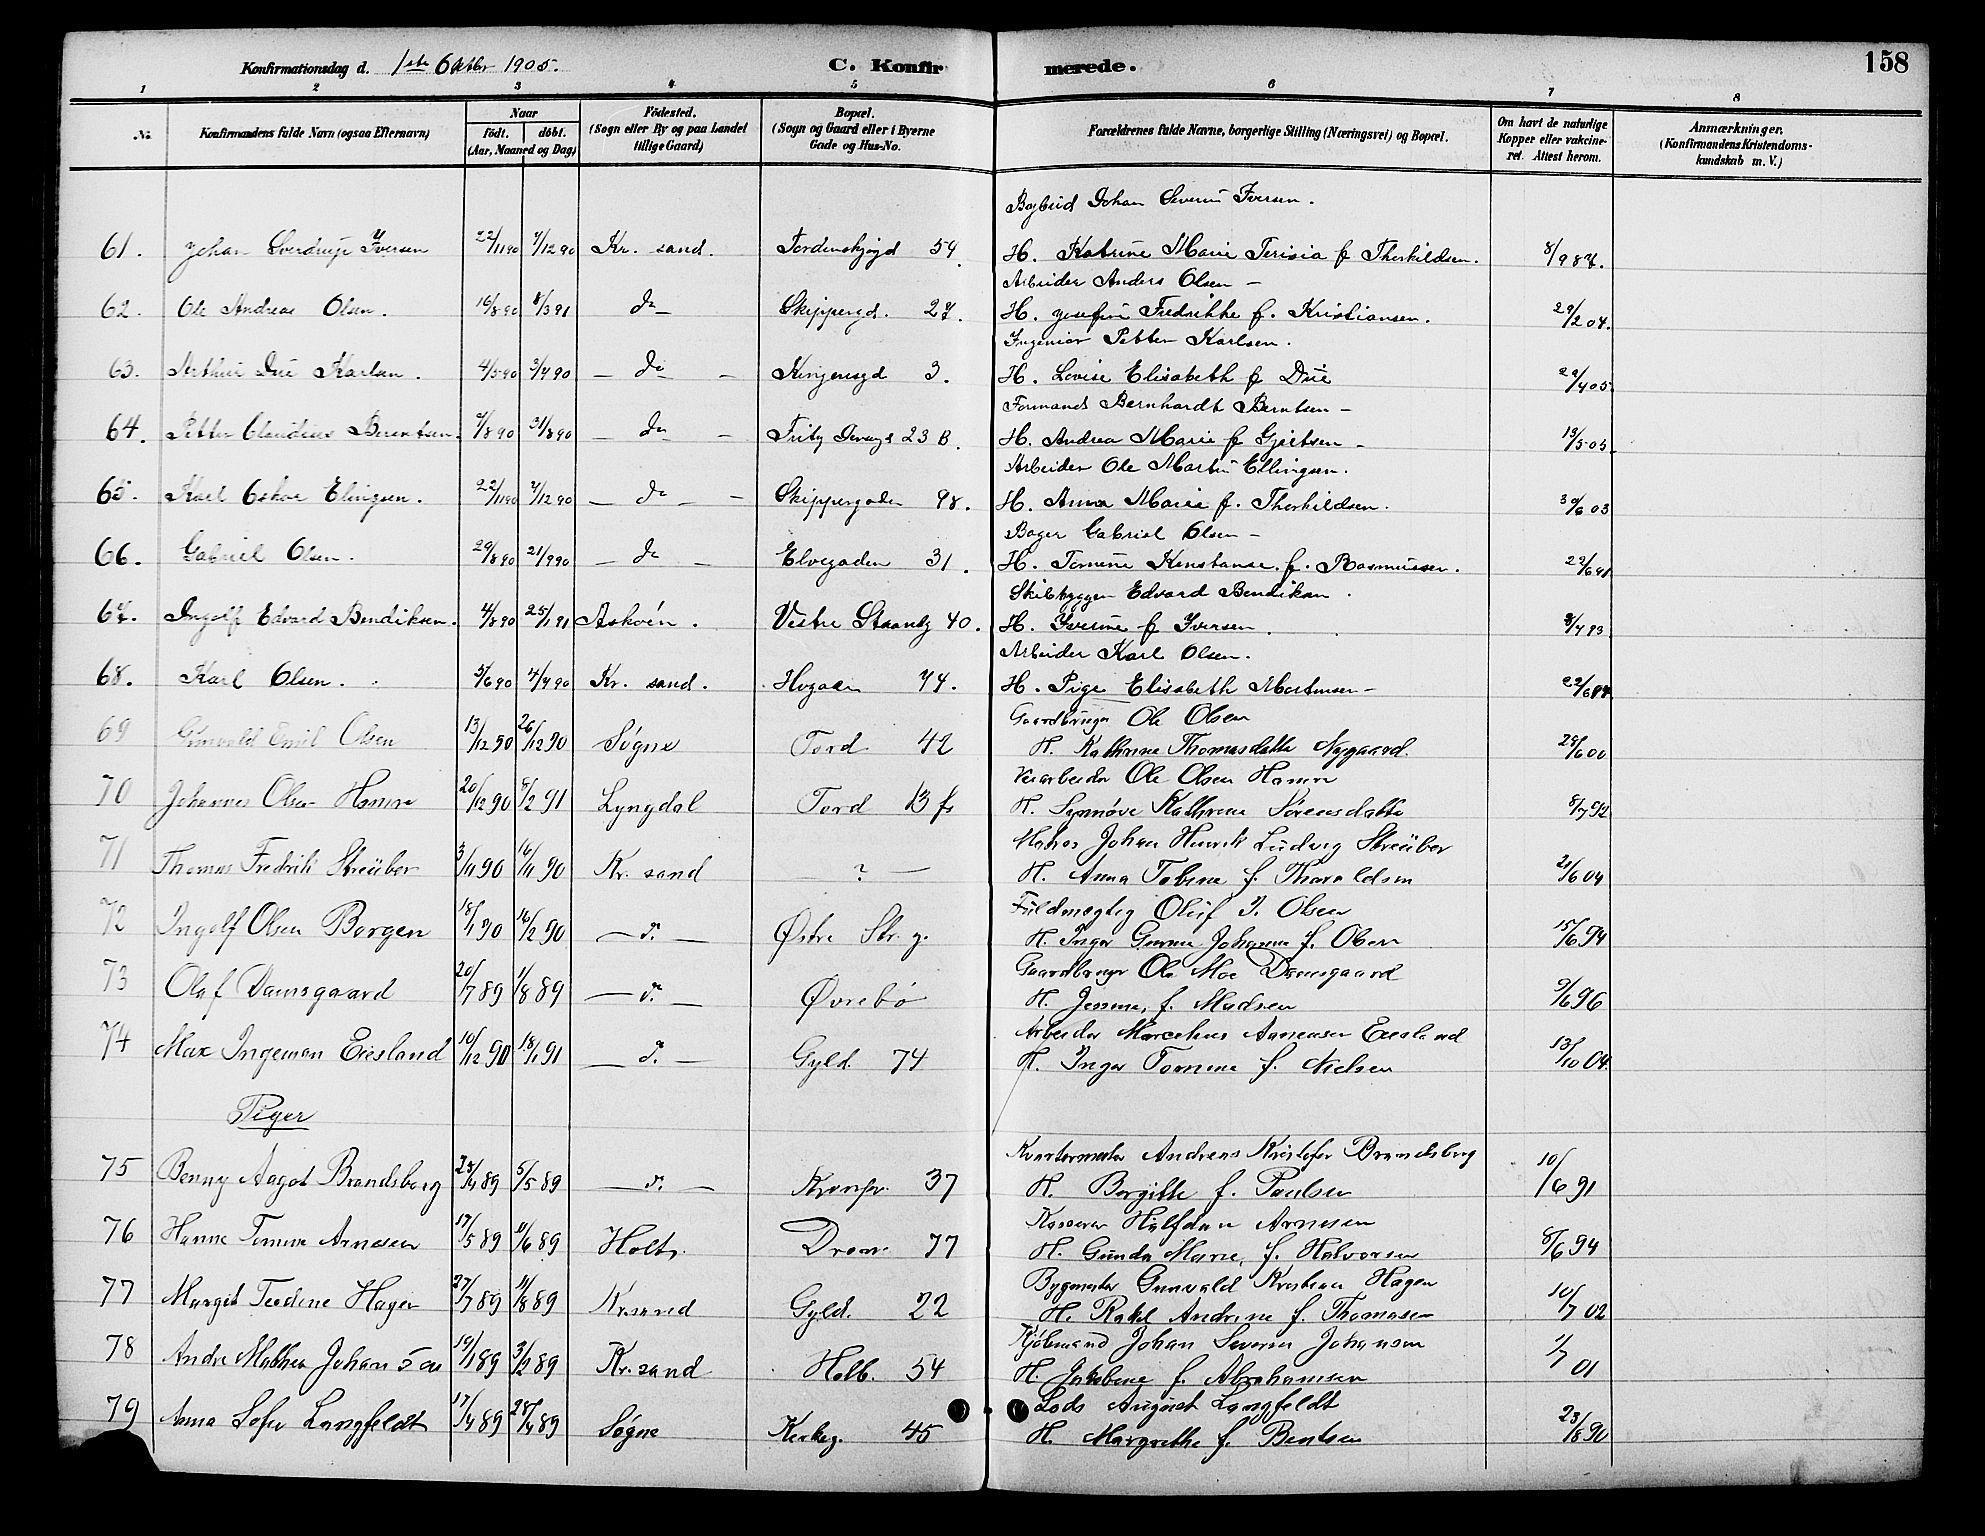 Konfirmationsdag d. 1ste Oktbr 1905. C. Konfirmerede. 158
1 2 3 4 5 6 7 8
No. Konfirmandens fulde Navn (ogsaa Efternavn) Naar født. døbt. (Aar, Maaned og Dag) Fødested. (Sogn eller By og paa Landet tillige Gaard) Bopæl. (Sogn og Gaard eller i Byerne Gade og Hus-No. Forældrenes fulde Navne, borgerlige Stilling (Næringsvei) og Bopæl. Om havt de naturlige Kopper eller vakcineret. Attest herom. Anmærkninger. (Konfirmandens Kristendomskundskab m. V.)
Johan Severin Iversen.
61. Johan Sverdrup Iversen 22/11 90 7/12 90 Kr. sand. Tordenskjogd 54. H. Katrine Marie Terisia f Therkildsen. 8/9 87.
Arbeider Anders Olsen –
62. Ole Andreas Olsen. 16/8 90 8/3 91 do Skippergd. 27. H. Josefine Fredrikke f. Kristiansen. 29/2 04.
Ingeniør Petter Karlsen.
63. Arthur Due Karlsen. 4/5 90 3/7 90 – do – Kongensgd 3. H. Lovise Elisabeth f Due 22/4 05
Formand Bernhardt Berntsen –
64. Petter Claudius Berentsen. 7/8 90 31/8 90 – do – 23 B. H. Andrea Marie f Gjertsen – 13/5 05.
Arbeider Ole Martin Ellingsen.
65. Karl Oskar Elingsen. 22/11 90 7/12 90 – do – Skippergaden 98. H. Anna Marie f. Therkildsen. 30/6 03
Bager Gabriel Olsen –
66. Gabriel Olsen. 29/8 90 21/9 90 – do – Elvegaden 31. H. Tomine Konstanse f. Rasmussen. 22/6 91
Skibbygger Edvard Bendiksen.
67. Ingolf Edvard Bendiksen. 4/8 90 25/1 91 Askøen. Vestre Strandg 40. H. Iverine f Iversen. 8/7 93
Arbeider Karl Olsen.
68. Karl Olsen. 5/6 90 4/7 90 Kr. sand. 74. H. Pige Elisabeth Mortensen –
69 Gunvald Emil Olsen 13/12 90 26/12 90 Søgne Tord. 42 Gaardbruger Ole Olsen
H. Kathrine Thomasdatter Nygaard. 28/6 00
70 Johannes Olsen Hamre 20/12 90 8/2 91 Lyngdal Tord 13 Veiarbeider Ole Olsen Hamre
H. Synnøve Kathrine Sørensdatter 8/7 92
71 Thomas Fredrik Streüber 3/11 90 16/11 90 Kr. sand – ? – Johan Henrik Ludvig Streüber
H. Anna Tobine f. Tharaldsen 21/6 04
72 Ingolf Olsen Borgen 18/1 90 16/2 90 – do. – Østre Str. g. Fuldmægtig Oluf I. Olsen
H. Inger Gurine Johanne f. Olsen 15/6 94
73 Olaf Damsgaard 20/7 89 1/8 89 – do. – Øvrebø Gaardbruger Ole Moe Damsgaard
H. Jensine, f. Madsen 9/6 96
74 Max Ingeman Eiesland 10/12 90 18/1 91 – do. – Gyld. 74 Arbeider Marcelius Aanensen Eiesland
H. Inger Tomine f. Nielsen 13/10 04
Piger
75 Benny Aagot Brandsborg 25/4 89 5/5 89 – do. – Kronpr. 37 Kvartermester Andreas Kristofer Brandsborg
H. Borgitte f. Paulsen 10/6 91
76 Hanne Tomine Arnesen 17/5 89 11/6 89 Holt. Dron. 77 Kasserer Halfdan Arnesen
H. Gunda Marie, f. Halvorsen 8/6 94
77 Margit Teodine Hagen 27/7 89 11/8 89 Krsand Gyld. 22 Bygmester Gunvald Kristian Hagen
H. Rakel Andrine f. Thomasen 10/7 02
78 Andre Mathea Johansen 19/1 89 3/2 89 Kr. sand Holb. 54 Kjøbmand Johan Severin Johansen
H. Jakobine f. Abrahamsen 1/7 01
79 Anna Sofie Langfeldt 17/4 89 28/4 89 Søgne Kirkeg. 45 Lods August Langfeldt
H. Margrethe f. Bentsen 23/8 90